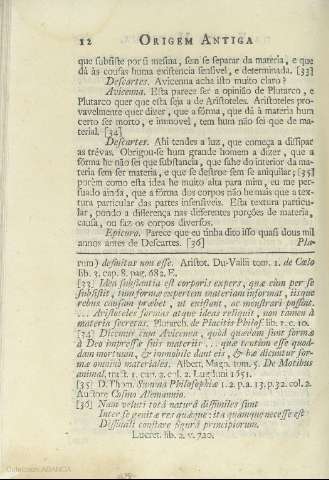 12 ORIGEM ANTIGA
que subsiste por si mesma, sem se separar da materia, e que
dá às cousas huma existencia sensivel, e determinada. [33]
Descartes. Avicenna acha isto muito claro?
Avicenna. Esta parece ser a opinião de Plutarco, e
Plutarco quer que esta seja a de Aristoteles. Aristoteles pro-
vavelmente quer dizer, que a fórma, que dá à materia hum
certo ser morto, e immovel, tem hum não sei que de ma-
terial. [34]
Descartes. Ahi tendes a luz, que começa a dissipar
as trévas. Obrigou-se hum grande homem a dizer, que a
fórma he não sei que substancia, que sahe do interior da ma-
teria sem ser materia, e que se destroe sem se aniquilar; [35]
porém como esta idea he muito alta para mim, eu me per-
suado ainda, que a fórma dos corpos não he mais que a tex-
tura particular das partes insensiveis. Esta textura particu-
lar, pondo a differença nas differentes porções de materia,
causa, ou faz os corpos diversos.
Epicuro. Parece que eu tinha dito isso quasi dous mil
annos antes de Descartes. [36] Pla-
rum) definitas non esse. Aristot. Du-Vallii tom. 1. de Cœlo
lib. 3. cap. 8. pag. 682. E.
[33] Idea substantia est corporis expers, quæ cùm per se
subsistit, tum formæ expertem materiam informat, iisque
rebus causam præbet, ut existant, ac monstrari possint.
... Aristoteles formas atque ideas reliquit, non tamen à
materia secretas. Plutarch. de Placitis Philos. lib. 1. c. 10.
[34] Dicimus cum Avicenna, quod quædam sunt formæ
à Deo impressæ suis materiis... quæ tentum esse quod-
dam mortuum, & immobile dant eis, & hæ dicuntur for-
mæ omninò materiales. Albert. Magn. tom. 5. De Motibus
animal. tract. 1. cap. 2. col. 2. Lugduni 1651.
[35] D. Thom. Summa Philosophiæ 1. 2. p. a. 13. p. 32. col. 2.
Auctore Cosmo Alemannio.
[36] Nam veluti totâ naturâ dissimiles sunt
Inter se genitæ res quæque: ita quamque necesse est
Dissimili constare figurâ principiorum.
Lucret. lib. 2. v. 720.
Colección ABANCA